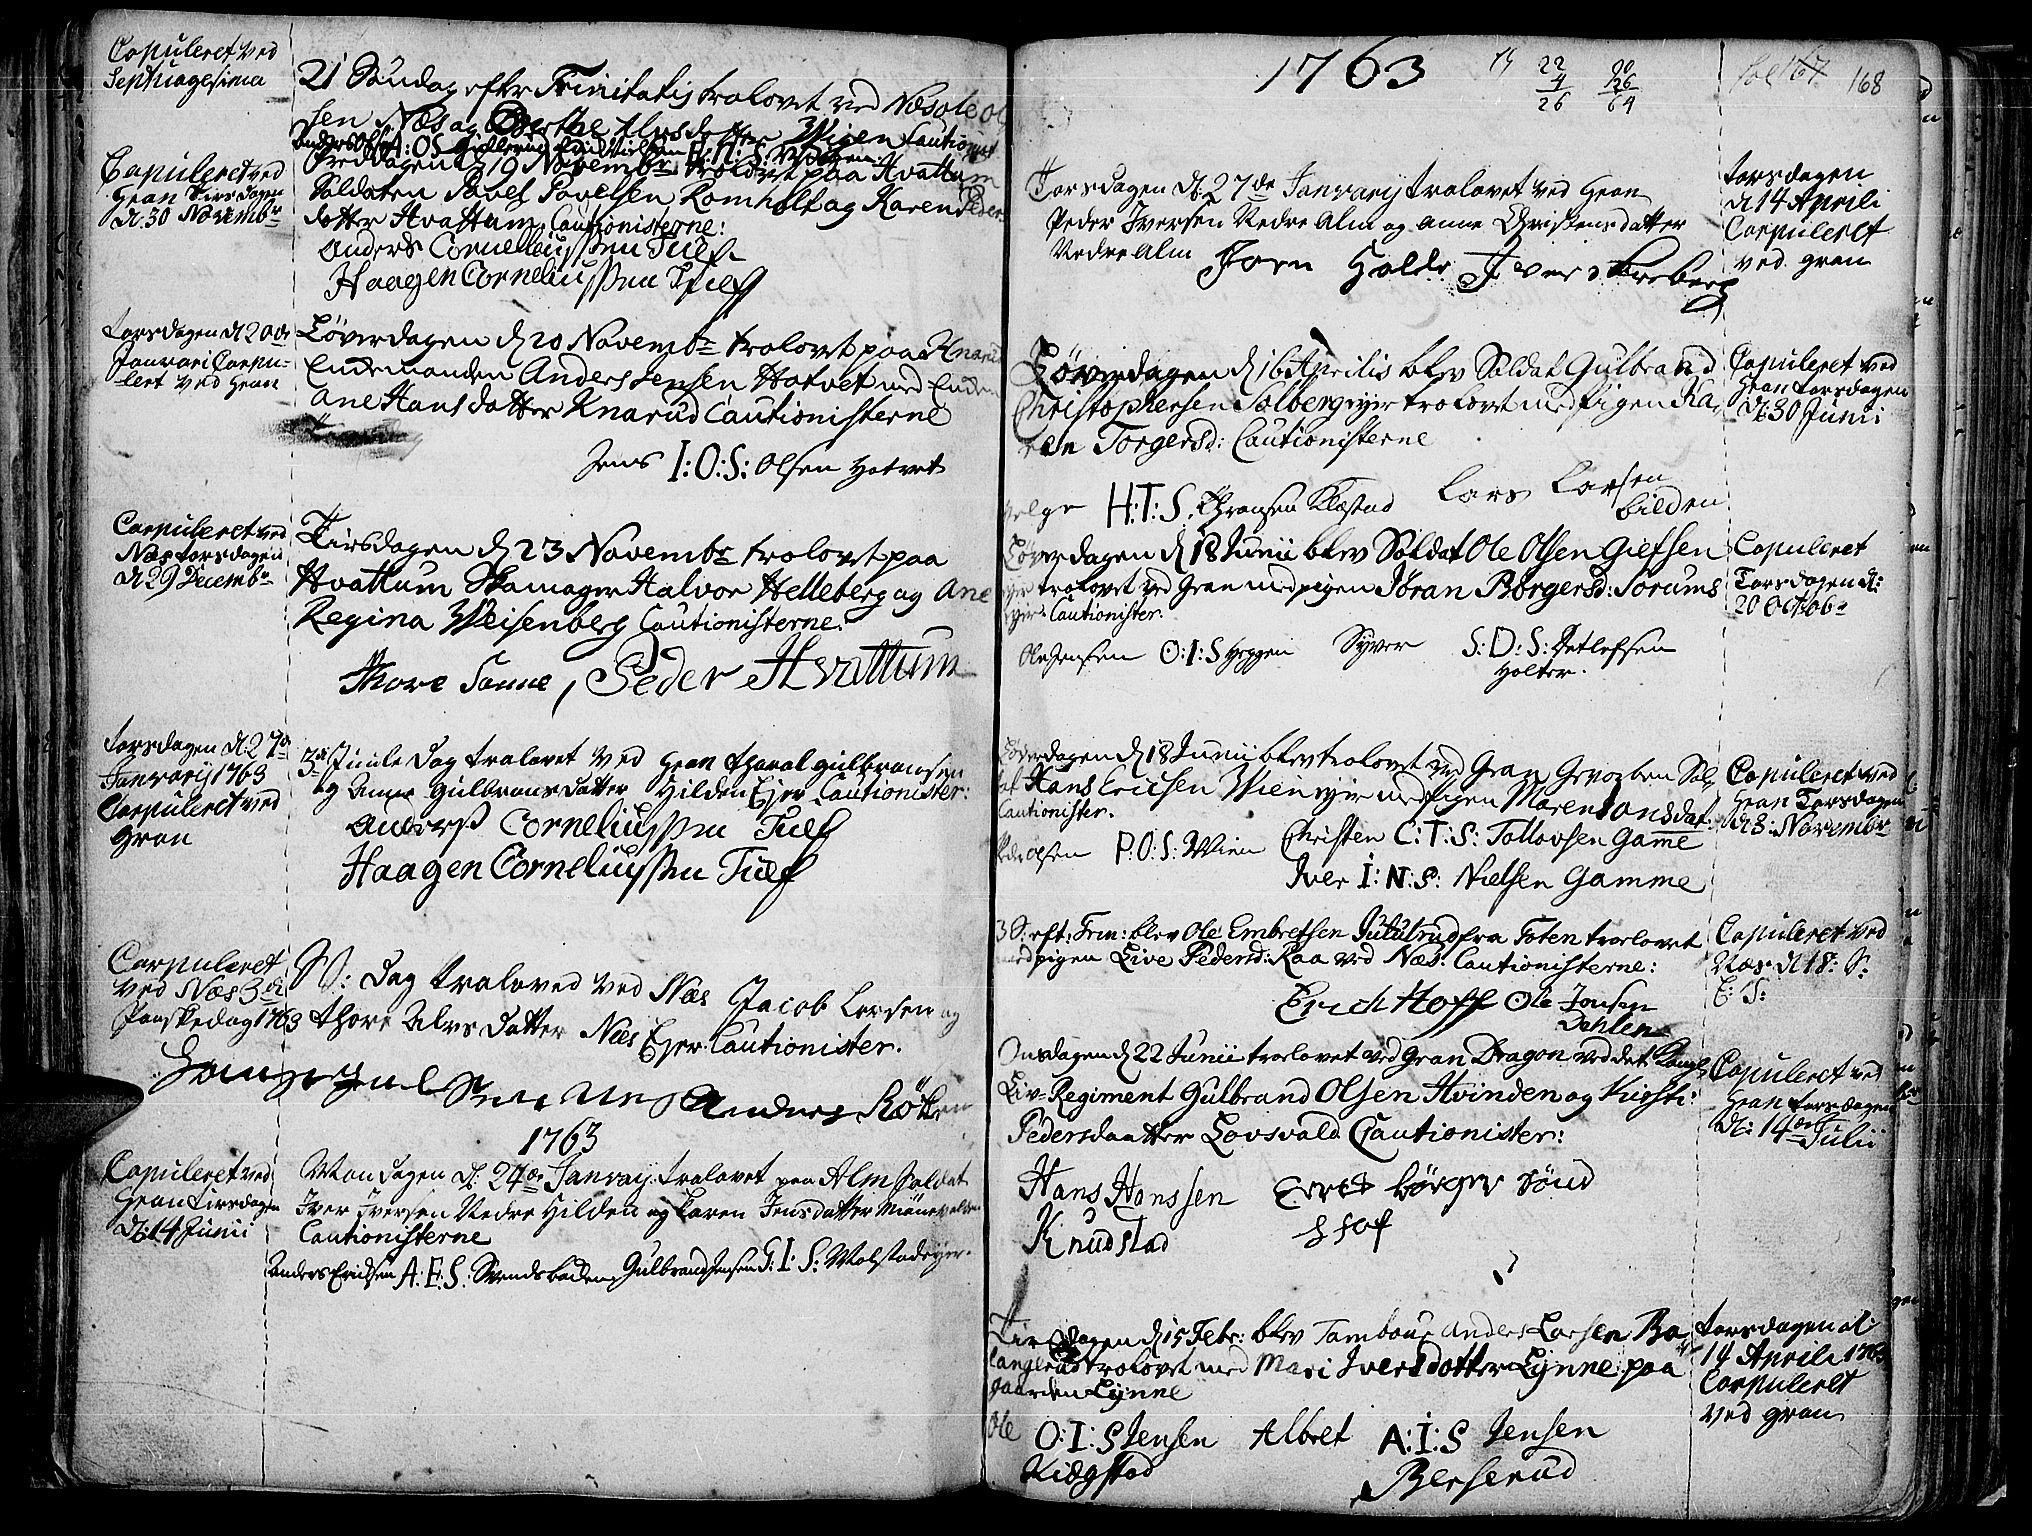 Copuleret ved
Septuagesima
21 Søndag efter Trinitatis trolovet ved Næs Ole Ol
sen Næs ag Berthe Alvsdatter Wigen Cautionist
Copuleret ved
Gran Tirsdagen
d. 30 Novembr
Fredagen d. 19 Novembr trolovet paa Hvattum
Soldaten Povel Povelsen Romholt ag Karen Peders
datter Hvattum Cautionisterne:
Anders Corneliussen Tuef
Haagen Corneliussen Tuef
torsdagen d. 20de
Januari Copu-
leret ved Gran
Løverdagen d. 20 Novembr trolovet paa Knarud
Enkemanden Anders Jensen Hotvet med Enken
Ane Hansdatter Knarud Cautionisterne
Jens I:O:S: Olsen Hotvet
Copuleret ved
Næs torsdagen
d. 29 Decembr
Tirsdagen d. 23 Novembr trolovet paa
Hvattum Skomager Halvor Helleberg ag Ane
Regina Weisenberg Cautionisterne:
Thore Sonne, Peder Hvattum
torsdagen d. 27de
Janvarij 1763
Copuleret ved
Gran
3de Juule Dag trolovet ved Gran Gulbransen
og Anne Gulbrans Datter Hilden Ejer Cautionister:
Anders Corneliussen Tuef
Haagen Corneliussen Tuef
Copuleret
ved Næs 3die
Paaskedag 1763
Dag troloved ved Næs Jacob Larsen og
Thore Alvs Datter Næs Ejer Cautionister.
Anders Røken
1763
Copuleret ved
Gran Tirsdagen
d. 14 Junii
Mandagen d. 24de Janvarij trolovet paa Alm Soldat
Iver Iversen Nedre Hilden og Karen Jensdatter
Cautionisterne
Anders Erichsen A:E:S: Svendsbacken Gulbrand Jensen G:I:S: Molstadeyer.
1763
22
4
26
fol 167 168
Torsdagen d. 27de Janvarij trolovet ved Gran
Peder Iversen Nedre Alm og Anne Christensdatter
Nedre Alm Joen Holde Iver Skreberg
torsdagen
d. 14 Aprili
Copuleret
ved gran
Løverdagen d. 16 Aprilis blev Soldat Gulbrand
Christophersen Solbergeyer trolovet med pigen Ka-
ren Torgersd: Cautionisterne
Helge H:T:S: Thronsen Klæstad Lars Larsen
bilden
Copuleret ved
Gran torsdagen
d. 30 Junii
Løverdagen d. 18 Junii blev Soldat Ole Olsen Giefsen
eyer trolovet ved Gran med pigen Jøran Børgersd: Sorums
eyer: Cautionister.
Ole Jensen O:I:S Hyggen Syver S:D:S: Detlefsen
Holter.
Copuleret
Torsdagen d:
20 Octobr
Løverdagen d. 18 Junii blev trolovet ved Gran Gevorben Sol-
dat Hans Ericsen Wieneyer med pigen Maren Jonsdat.
Cautionister.
Peder Olsen P:O:S: Wien Christen C:T:S: Tollovsen Game
Iver I:N:S: Nielsen Gamme
Copuleret ved
Gran Torsdagen
d. 3: Novembr
3 S: eft: Trin: blev Ole Embretsen Jululrud fra Toten trolovet
med pigen Live Pedersd: Raa ved Næs: Cautionisterne:
Erich Hoff Ole Jonsen
Dehlen
Copuleret ved
Næs d. 18: S:
E: T:
Onsdagen d. 22 Junii trolovet ved Gran Dragon ved det Kongl:
Liv-Regiment Gulbrand Olsen Hvinden og Kirsti:
Pedersdaatter Lovsvald Cautionister:
Hans Hanssen
Knudstad
Copuleret ved
Gran torsdagen
d: 14de Julii
Tirsdagen d. 15 Febr: blev Tambour Anders Larsen Ba
langerud trolovet med Mari Iversdotter Lynne paa
gaarden Lynne
Ole O:I:S Jensen Albret A:I:S Jensen
Kiægstad Berserud
torsdagen d:
14 Aprili 1763
Copuleret
ved gran